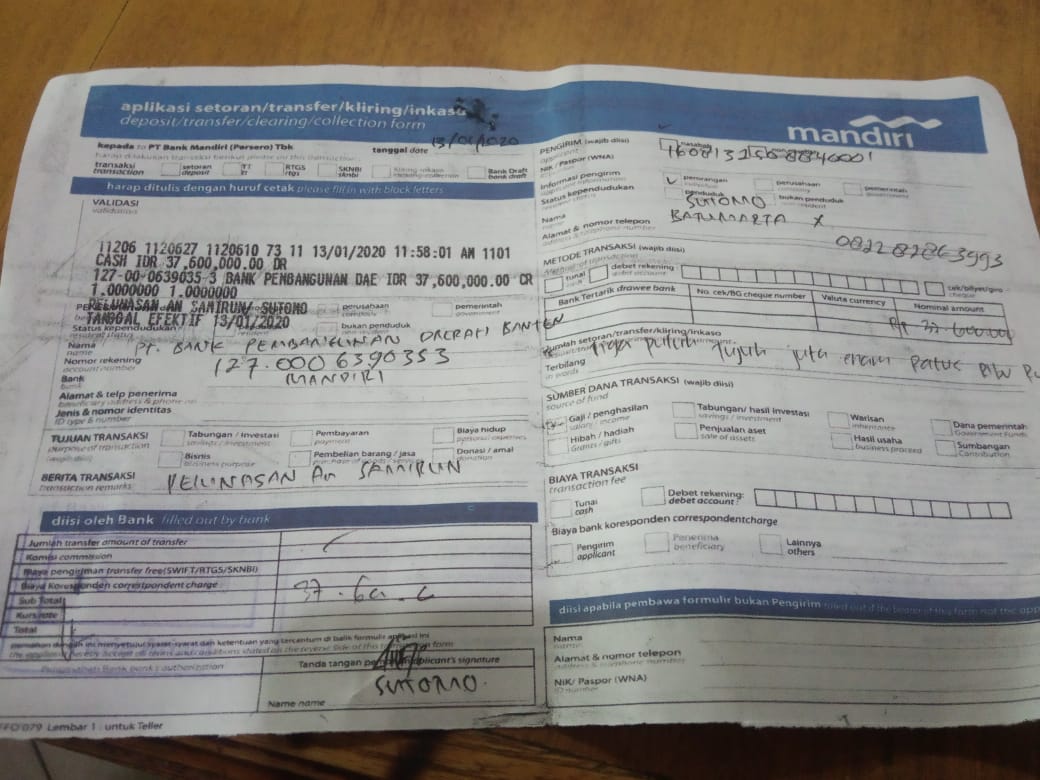 aplikasi setoran/transfer/kliring/inkaso
deposit/transfer/clearing/collection form
mandiri
kepada to PT Bank Mandiri (Persero) Tbk
tanggal date 13/01/2020
transaksi
transaction
setoran
deposit
TT
RTGS
rtgs
SKNBI
sknbi
Bank Draft
bank draft
harap ditulis dengan huruf cetak please fill in with block letters
VALIDASI
validation
11206 1120627 1120610 73 11 13/01/2020 11:58:01 AM 1101
CASH IDR 37,600,000.00 DR
127-00-0639035-3 BANK PENBANGUNAN DAE IDR 37,600,000.00 CR
1.0000000 1.0000000
PELUNASAN AN SAMIRUN/ SUTOMO
TANGGAL EFEKTIF 13/01/2020
perusahaan
company
pemerintah
government
Status kependudukan
resident status
bukan penduduk
Nama PT. BANK PEMBANGUNAN DAERAH BANTEN
name
Nomor rekening 127.0006390353
account number
Bank MANDIRI
bank
Alamat & telp penerima
Jenis & nomor identitas
ID type & number
TUJUAN TRANSAKSI
purpose of transaction
Tabungan / Investasi
savings / investment
Pembayaran
payment
Biaya hidup
Bisnis
business purpose
Pembelian barang / jasa
Donasi / amal
donation
BERITA TRANSAKSI PELUNASAN An SAMIRUN
transaction remarks
diisi oleh Bank filled out by bank
Jumlah transfer amount of transfer
Komisi commission
Biaya pengiriman transfer free(SWIFT/RTGS/SKNBI)
Biaya Koresponden correspondent charge
Sub Total
Kurs rate
Total
Tanda tangan pemohon applicant's signature
SUTOMO
Name name
Lembar 1 : untuk Teller
PENGIRIM (wajib diisi)
applicant
NIK / Paspor (WNA)
Informasi pengirim
perorangan
perusahaan
company
pemerintah
government
Status kependudukan
penduduk
bukan penduduk
Nama SUTOMO
name
Alamat & nomor telepon BATUMARTA X
082282863993
METODE TRANSAKSI (wajib diisi)
tunai
cash
debet rekening
cek/bilyet/giro
cheque
Bank Tertarik drawee bank
No. cek/BG cheque number
Valuta currency
Nominal amount
Rp 37.600.000
Jumlah setoran/transfer/kliring/inkaso
Terbilang Tiga puluh Tujuh juta enam ratus ribu
in words
SUMBER DANA TRANSAKSI (wajib diisi)
source of fund
Gaji / penghasilan
salary / income
Tabungan/ hasil investasi
savings / investment
Warisan
inheritance
Dana pemerintah
Government Funds
Hibah / hadiah
Grants / gifts
Penjualan aset
sale of assets
Hasil usaha
business proceed
Sumbangan
Contribution
BIAYA TRANSAKSI
transaction fee
Tunai
cash
Debet rekening:
debet account:
Biaya bank koresponden correspondentcharge
Pengirim
applicant
Penerima
beneficiary
Lainnya
others
diisi apabila pembawa formulir bukan Pengirim
Nama
name
Alamat & nomor telepon
address & telephone number
NIK/ Paspor (WNA)
ID number